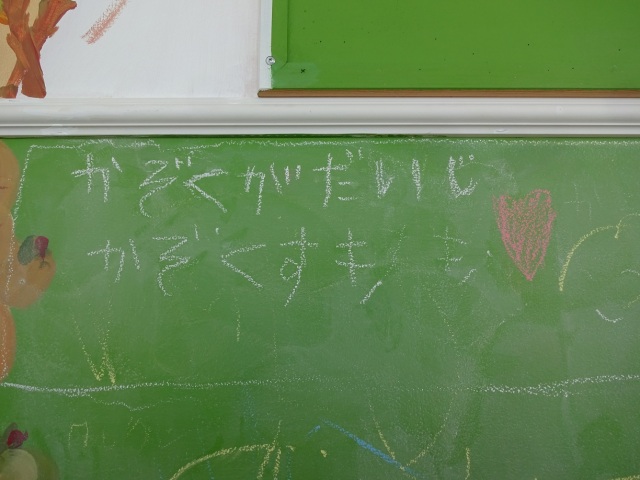 かぞくがだいじ
かぞくすき